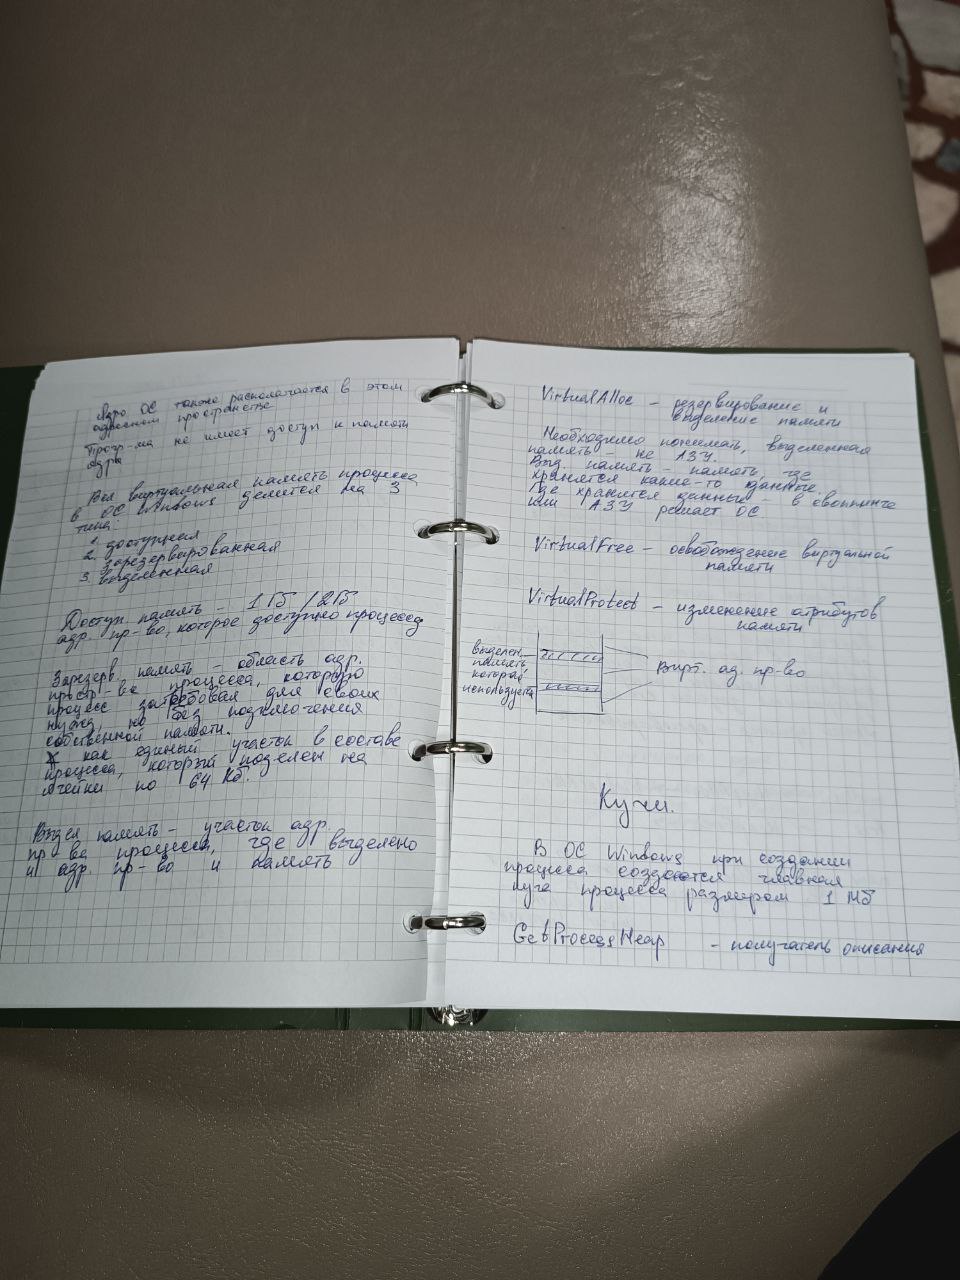 Ядро ОС также располагается в этом
адресном пространстве
Прогр-ма не имеет доступ к памяти
ядра
Вся виртуальная память процесса
в ОС Windows делится на 3
типа:
1. доступная
2. зарезервированная
3. выделенная
Доступн память – 1 Гб / 2 Гб
адр. пр-во, которое доступно процессу
Зарезерв. память – область адр.
простр-ва процесса, которую
процесс затребовал для своих
нужд, но без подключения
собственной памяти.
как единый участок в составе
процесса, который поделен на
ячейки по 64 Кб.
Выдел память – участок адр.
пр-ва процесса, где выделено
и адр. пр-во и память
VirtualAlloc – резервирование и
выделение памяти
Необходимо понимать, выделенная
память – не АЗУ.
Выд. память – память, где
хранятся какие-то данные.
Где хранятся данные – в свопинге
или АЗУ решает ОС.
VirtualFree – освобождение виртуальной
памяти
VirtualProtect – изменение атрибутов
памяти
выделен.
память
которая
используется
Вирт. ад. пр-во
Кучи.
В ОС Windows при создании
процесса создаются главная
куча процесса размером 1 Мб
GetProcessHeap - получатель описания